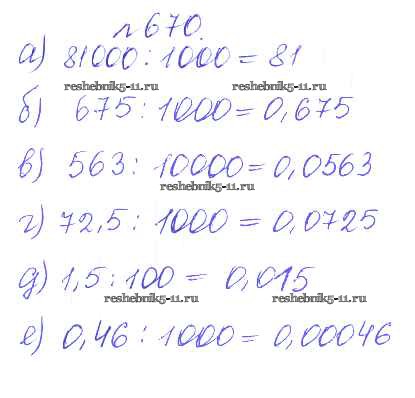 №670.
а) 81000 : 1000 = 81
reshebnik5-11.ru reshebnik5-11.ru
б) 675 : 1000 = 0,675
в) 563 : 10000 = 0,0563
reshebnik5-11.ru
г) 72,5 : 1000 = 0,0725
д) 1,5 : 100 = 0,015
reshebnik5-11.ru reshebnik5-11.ru
е) 0,46 : 1000 = 0,00046